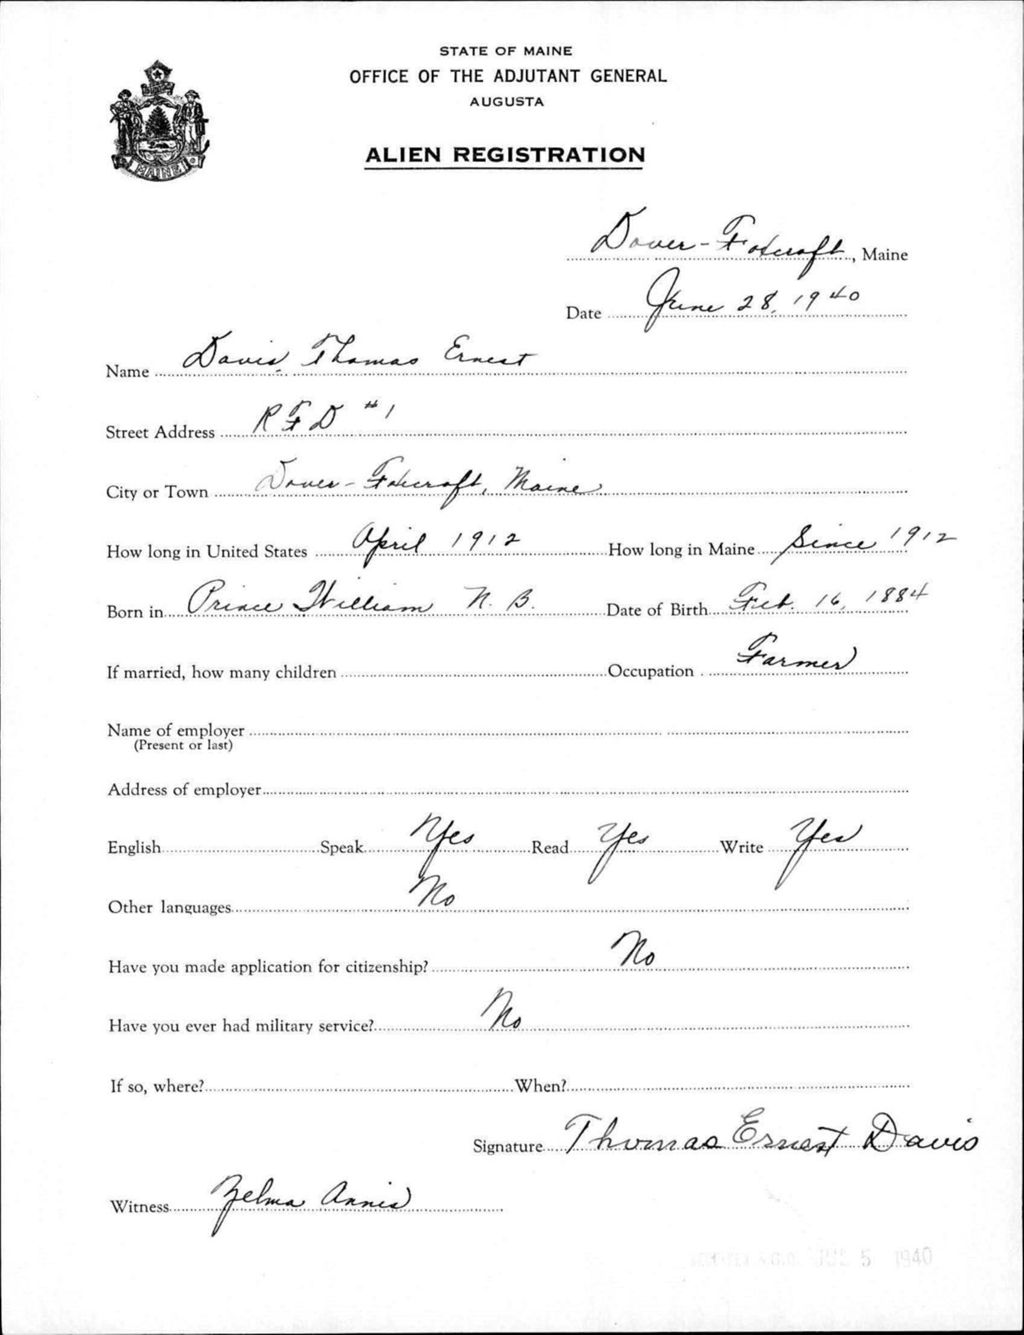 STATE OF MAINE
OFFICE OF THE ADJUTANT GENERAL
AUGUSTA
ALIEN REGISTRATION
MAINE
Dover-Foxcroft, Maine
Date June 28, 1940
Name Davis, Thomas Ernest
Street Address R F D #1
City or Town Dover-Foxcroft, Maine
How long in United States April 1912 How long in Maine Since 1912
Born in Prince William N. B. Date of Birth Feb. 16, 1884
If married, how many children Occupation Farmer
Name of employer
(Present or last)
Address of employer
English Speak Yes Read Yes Write Yes
Other languages No
Have you made application for citizenship? No
Have you ever had military service? No
If so, where? When?
Signature Thomas Ernest Davis
Witness Zelma Annis
A.G.O. 5 1940